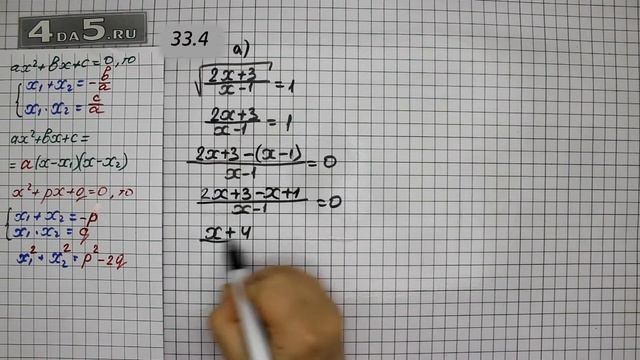 4DA5.RU
ax²+bx+c=0, то
x₁+x₂=-b/a
x₁·x₂=c/a
ax²+bx+c=
=a(x-x₁)(x-x₂)
x²+px+q=0, то
x₁+x₂=-p
x₁·x₂=q
x₁²+x₂²=p²-2q
33.4
а)
√((2x+3)/(x-1))=1
(2x+3)/(x-1)=1
(2x+3-(x-1))/(x-1)=0
(2x+3-x+1)/(x-1)=0
x+4